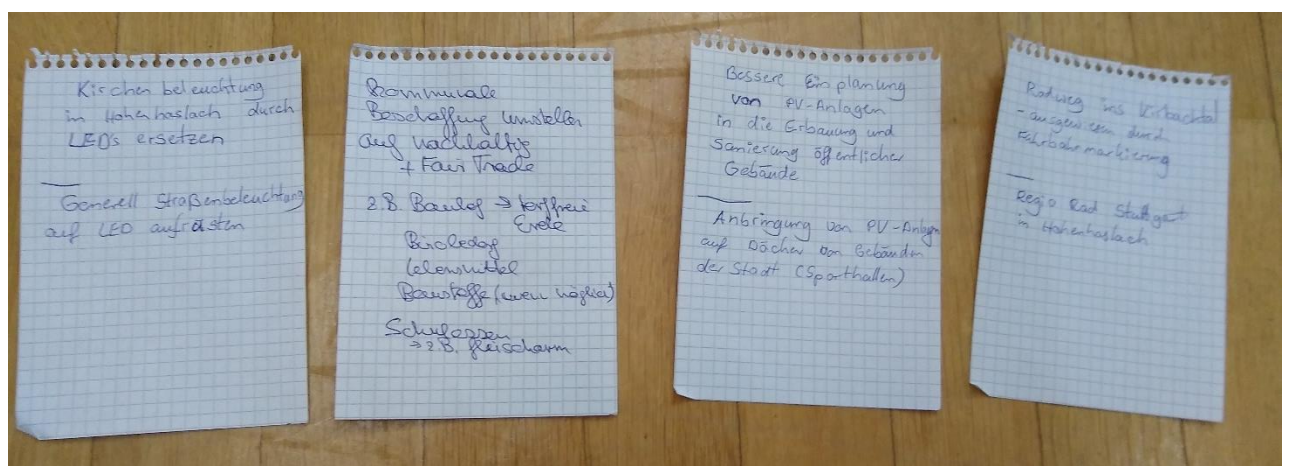 Kirchenbeleuchtung
in Hohenhaslach durch
LEDs ersetzen
Generell Straßenbeleuchtung
auf LED aufrüsten
Kommunale
Beschaffung umstellen
auf nachhaltig
+ Fair Trade
z.B. Bauhof → torffreie
Erde
Bürobedarf
Lebensmittel
Baustoffe (wenn möglich)
Schulessen
→ z.B. fleischarm
Bessere Einplanung
von PV-Anlagen
in die Erbauung und
Sanierung öffentlicher
Gebäude
Anbringung von PV-Anlagen
auf Dächer von Gebäuden
der Stadt (Sporthallen)
Radweg ins Kirbachtal
- ausgewiesen durch
Fahrbahnmarkierung
Regio Rad Stuttgart
in Hohenhaslach